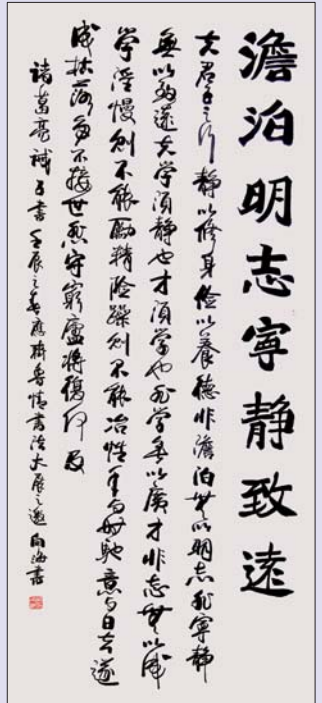 澹泊明志寧静致遠
夫君子之行静以修身俭以養德非澹泊無以明志非寧静
無以致遠夫学須静也才須学也非学無以廣才非志無以成
学淫慢则不能勵精险躁则不能冶性年与时馳意与日去遂
成枯落多不接世悲守窮廬将復何及
诸葛亮诫子書壬辰之春應齊魯情書法大展之邀向海書